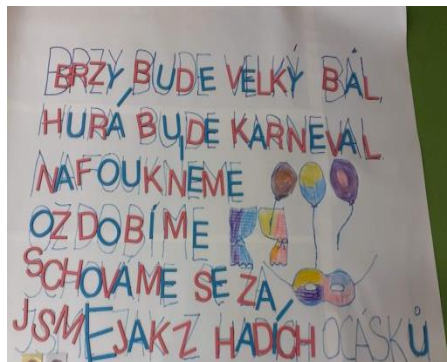 BRZY BUDE VELKÝ BÁL
HURÁ BUDE KARNEVAL
NAFOUKNEME
OZDOBÍME
SCHOVAME SE ZA
JSME JAK Z HADÍCH OCÁSKŮ